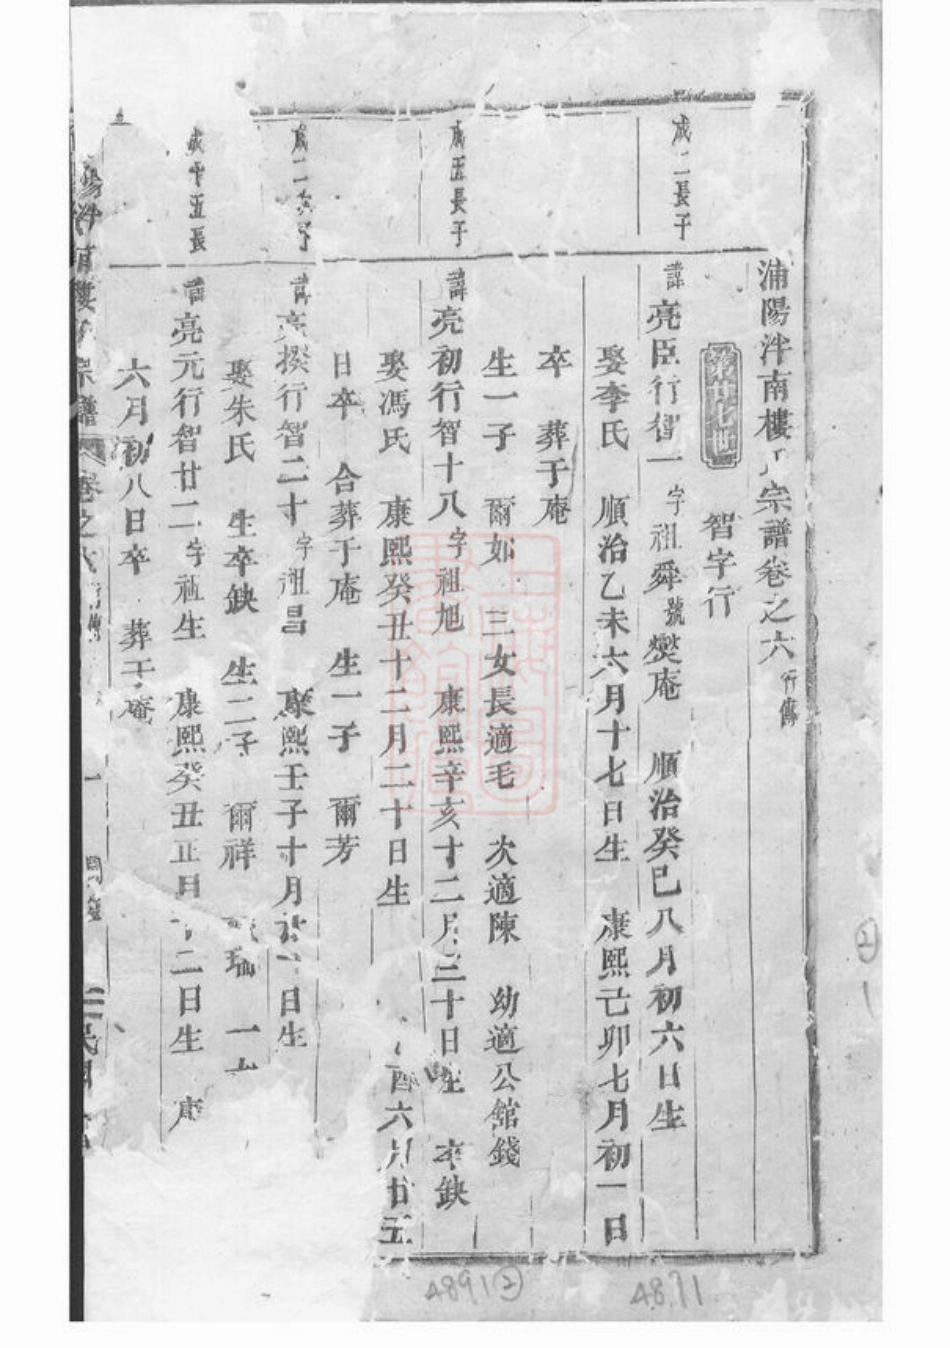 浦陽泮南樓氏宗譜卷之六 行傳
第廿七世 智字行
成二長子
諱亮臣行智一 字祖舜號爕庵 順治癸巳八月初六日生
娶李氏 順治乙未六月十七日生 康熙己卯七月初一日
卒 葬于庵
生一子 爾如 三女長適毛 次適陳 幼適公館錢
成五長子
諱亮初行智十八 字祖旭 康熙辛亥十二月三十日生 卒缺
娶馮氏 康熙癸丑十二月二十日生 酉六月廿五
日卒 合葬于庵 生一子 爾芳
成二次子
諱亮揆行智二十 字祖昌 康熙壬子十月 日生
娶朱氏 生卒缺 生二子 爾祥 瑞 一
成十五長
諱亮元行智廿二 字祖生 康熙癸丑正月 二日生
六月初八日卒 葬于庵
陽泮南樓 宗譜 卷之六 行傳 一
4871
4891②
②1